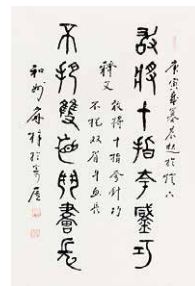 庚寅
敢將十指夸鍼巧
釋文
敢將十指夸針巧
不把双眉斗画長
不把雙眉鬥畫長
和州